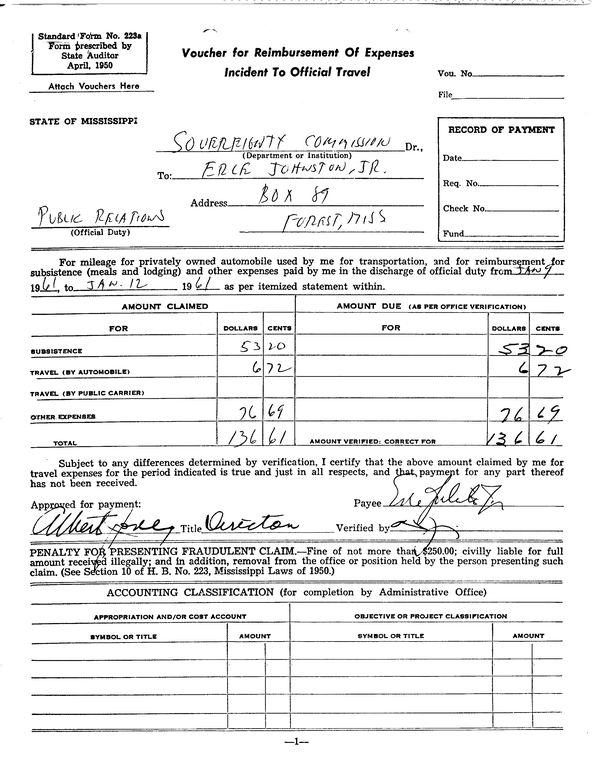 Standard Form No. 223a
Form prescribed by
State Auditor
April, 1950
Attach Vouchers Here
Voucher for Reimbursement Of Expenses
Incident To Official Travel
Vou. No.
File
STATE OF MISSISSIPPI
SOVEREIGNTY COMMISSION Dr.,
(Department or Institution)
To: ERLE JOHNSTON, JR.
Address BOX 89
FOREST, MISS
PUBLIC RELATIONS
(Official Duty)
RECORD OF PAYMENT
Date
Req. No.
Check No.
Fund
For mileage for privately owned automobile used by me for transportation, and for reimbursement for
subsistence (meals and lodging) and other expenses paid by me in the discharge of official duty from JAN 9
1961, to JAN. 12 1961 as per itemized statement within.
AMOUNT CLAIMED AMOUNT DUE (AS PER OFFICE VERIFICATION)
FOR DOLLARS CENTS FOR DOLLARS CENTS
SUBSISTENCE 53 20 53 20
TRAVEL (BY AUTOMOBILE) 6 72 6 72
TRAVEL (BY PUBLIC CARRIER)
OTHER EXPENSES 76 69 76 69
TOTAL 136 61 AMOUNT VERIFIED: CORRECT FOR 136 61
Subject to any differences determined by verification, I certify that the above amount claimed by me for
travel expenses for the period indicated is true and just in all respects, and that payment for any part thereof
has not been received.
Approved for payment: Payee Erle Johnston Jr
Albert Jones Title Director Verified by
PENALTY FOR PRESENTING FRAUDULENT CLAIM.—Fine of not more than $250.00; civilly liable for full
amount received illegally; and in addition, removal from the office or position held by the person presenting such
claim. (See Section 10 of H. B. No. 223, Mississippi Laws of 1950.)
ACCOUNTING CLASSIFICATION (for completion by Administrative Office)
APPROPRIATION AND/OR COST ACCOUNT OBJECTIVE OR PROJECT CLASSIFICATION
SYMBOL OR TITLE AMOUNT SYMBOL OR TITLE AMOUNT
—1—